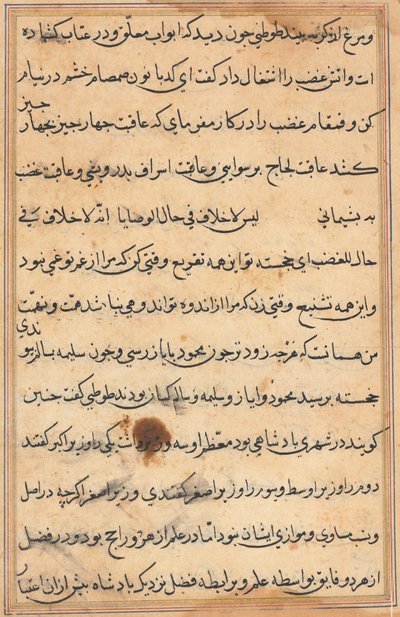 و مرغ از کرسه ببند طوطی چون دید که ابواب معلق و در عتاب کشاده
است و آتش غضب را اشتغال داد کفت ای کدبانو صمصام خشم در نیام
کن و ضرغام غضب را در کار مفرمای که عاقبت چهار چیز بچهار چیز
کشد عاقبت لجاج برسوایی و عاقبت اسراف بدرویشی و عاقبت غضب
به پشیمانی لیس لاخلاف فی حال الوصایا انه لاخلاف فی
حال للغضب ای خجسته تو این همه تقریع وقتی کن که مرا از غم تو غمی نبود
و این همه تشنیع وقتی زن که مرا از اندوه تو اندوهی نباشد همت و نهمت
من همانست که هرچه زودتر چون محمود بایاز رسی و چون سلیمه بسالار
خجسته پرسید محمود و ایاز و سلیمه و سالار کیان بودند طوطی کفت چنین
کویند در شهری پادشاهی بود معظم او سه وزیر داشت یکی را وزیر اکبر کفتند
دوم را وزیر اوسط و سوم را وزیر اصغر کفتندی وزیر اصغر اکرچه در اصل
و نسب مساوی و موازی ایشان نبود اما در علم از هر دو راجح بود و در فضل
از هر دو فایق بواسطه علم و برابطه فضل نزدیک پادشاه بیش از آن اعتبار